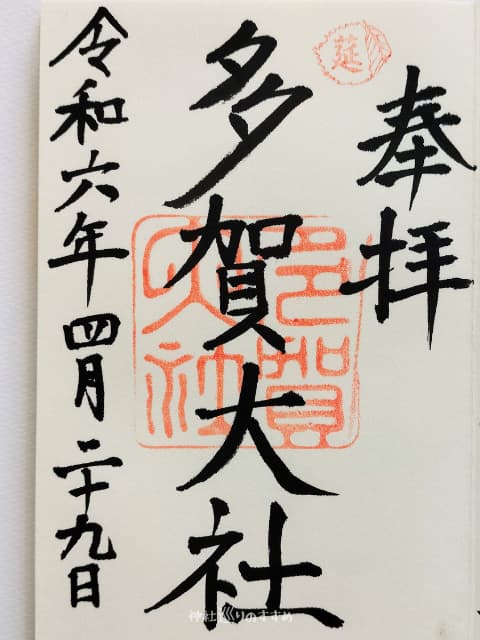 奉拝
莚
多賀大社
多賀大社
令和六年四月二十九日
神社巡りのすすめ